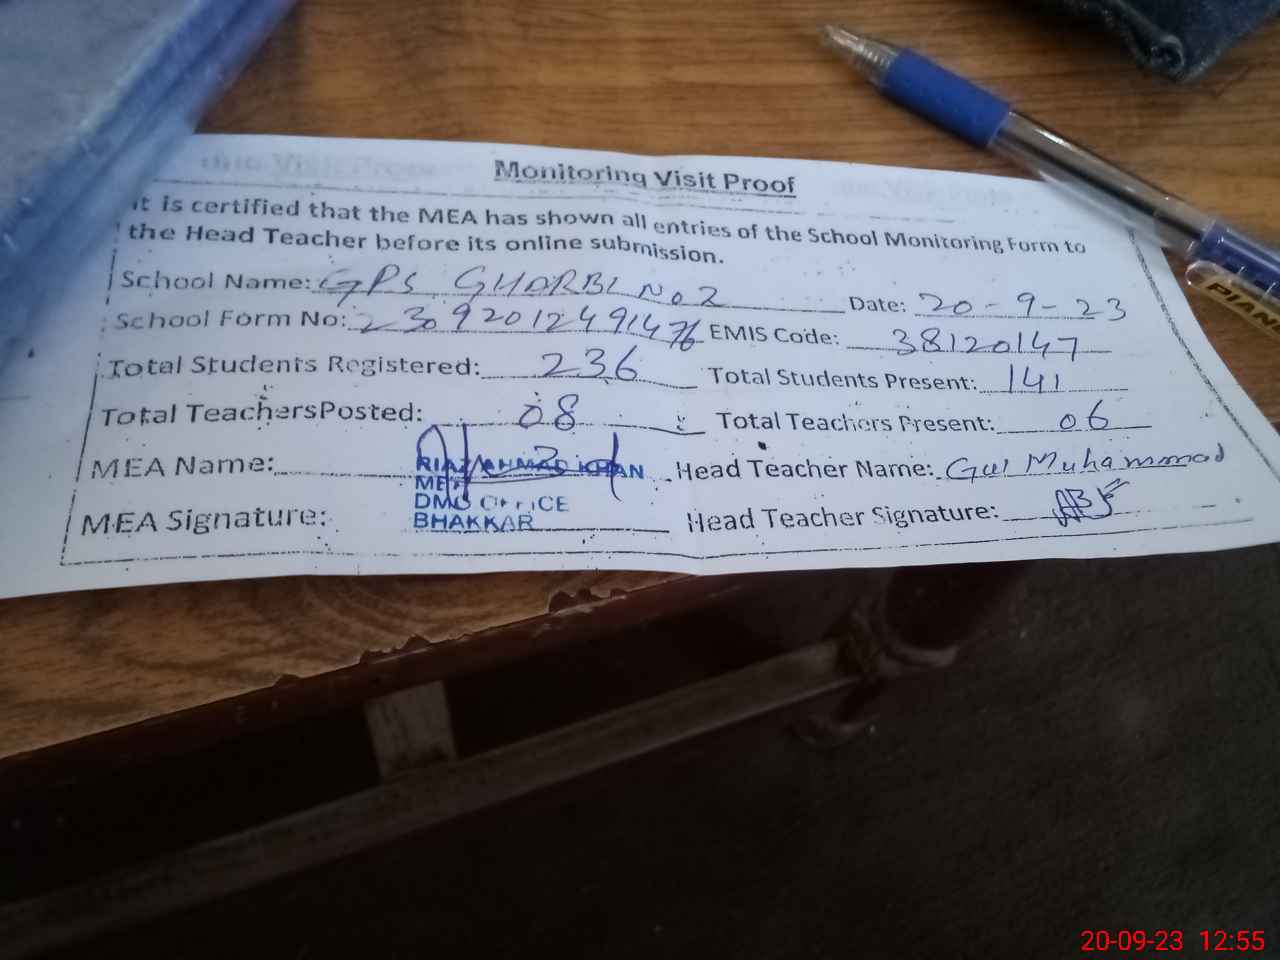 Monitoring Visit Proof
It is certified that the MEA has shown all entries of the School Monitoring Form to
the Head Teacher before its online submission.
School Name: GPS GHARBI No 2 Date: 20-9-23
School Form No: 23092012491476 EMIS Code: 38120147
Total Students Registered: 236 Total Students Present: 141
Total TeachersPosted: 08 Total Teachers Present: 06
MEA Name: RIAZ AHMAD KHAN Head Teacher Name: Gul Muhammad
MEA
DMO OFFICE
MEA Signature: BHAKKAR Head Teacher Signature:
PIANO
20-09-23 12:55